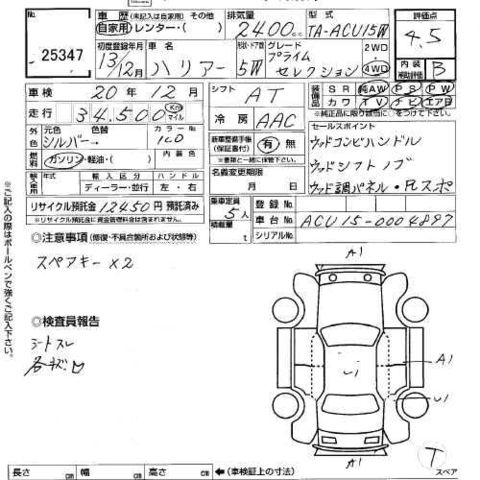 No.
25347
車歴 (未記入は自家用) その他
自家用・レンター・( )
排気量
2400cc
型式
TA-ACU15W
評価点
4.5
初度登録年月
13/12月
車名
ハリアー
形状・ドア数
5W
グレード
プライム
セレクション
2WD・
4WD
内装
補助評価
B
車検
20年12月
シフト
AT
装備品
SR 純AW PS PW
カワ TV ナビ エアB
走行
34,500
Km
マイル
冷房
AAC
※純正品に限り装備に○をつけて下さい
外色
元色
シルバー→
色替
カラーNo
1C0
新車整備手帳
(保証書付)
有・無
※書類と一緒に保管下さい
セールスポイント
ウッドコンビハンドル
ウッドシフトノブ
ウッド調パネル・Rスポ
燃料
ガソリン・軽油・( )
内装色
名義変更期限
月 日
輸入車
年式
輸入区分
ディーラー・並行
ハンドル
左・右
乗車定員
5人
積載量
t
登録No.
車台No.
ACU15-0004897
シリアルNo.
リサイクル預託金 12450円 預託済み
※リサイクル預託金に資金管理料金は含まれます。
◎注意事項 (修復・不具合箇所および状態等)
スペアキー×2
※ご記入の際はボールペンで強くご記入下さい。
◎検査員報告
シートスレ
各キズ凹
A1
A1
U1
U1
A1
T
スペア
長さ cm 幅 cm 高さ cm ←(車検証上の寸法)